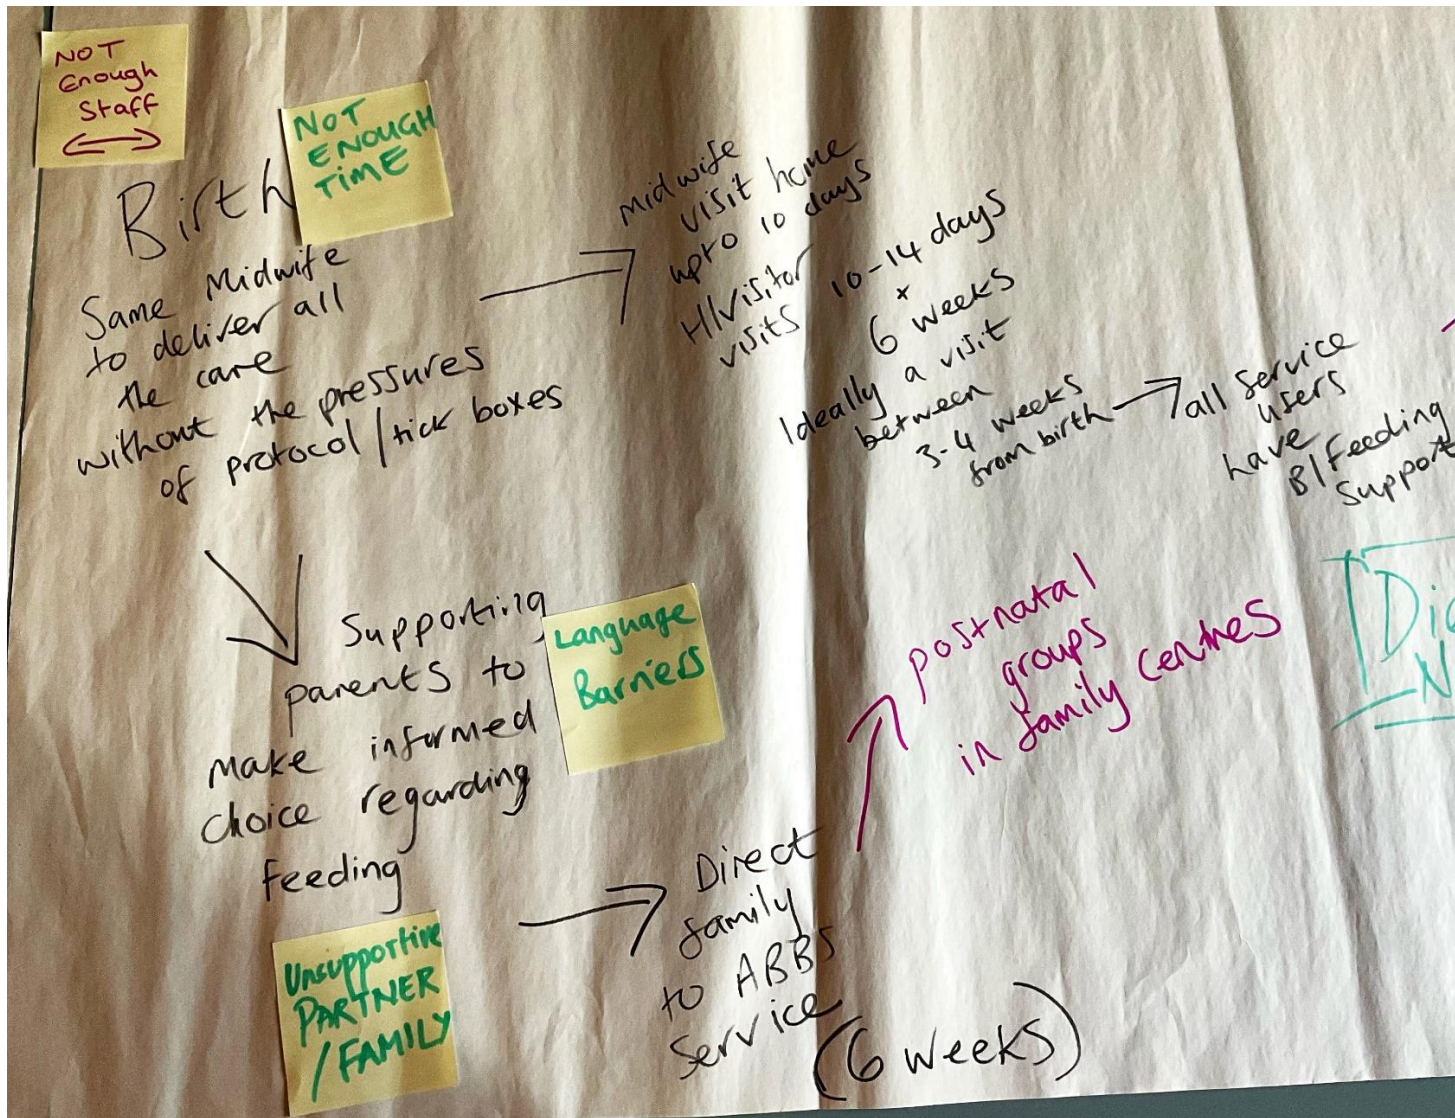 NOT
Enough
Staff
NOT
ENOUGH
TIME
Birth
Same Midwife
to deliver all
the care
without the pressures
of protocol / tick boxes
Midwife
visit home
upto 10 days
H/Visitor
visits 10-14 days
+
6 weeks
Ideally a visit
between
3-4 weeks
from birth
all service
users
have
B/Feeding
Support
Supporting
parents to
make informed
choice regarding
feeding
Language
Barriers
Unsupportive
PARTNER
/FAMILY
Direct
family
to ABBS
Service
(6 weeks)
postnatal
groups
in family centres